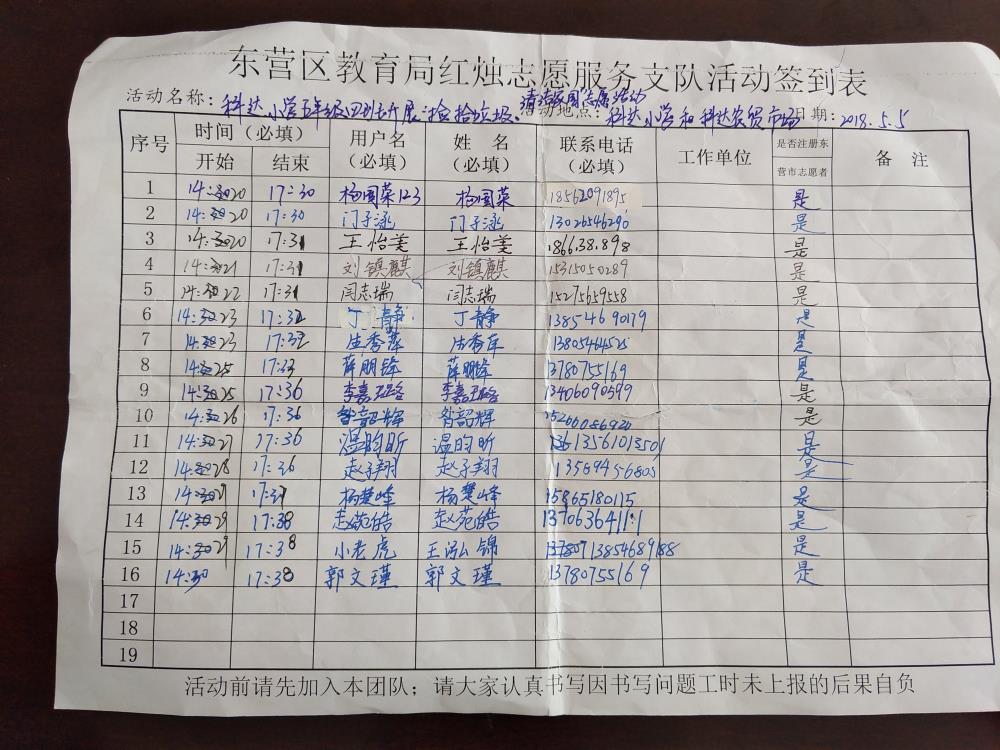 东营区教育局红烛志愿服务支队活动签到表
活动名称：科达小学五年级四班开展"捡拾垃圾、清洁校园"志愿活动 活动地点：科达小学和科达农贸市场 日期：2018.5.5
序号 时间（必填） 开始 结束 用户名（必填） 姓 名（必填） 联系电话（必填） 工作单位 是否注册东营市志愿者 备 注
1 14:20 17:30 杨国荣123 杨国荣 18562091895 是
2 14:20 17:30 门子涵 门子涵 13026546296 是
3 14:20 17:31 王怡美 王怡美 是
4 14:21 17:31 刘镇麒 刘镇麒 15315050289 是
5 14:22 17:31 闫志瑞 闫志瑞 15275659558 是
6 14:23 17:32 丁静 丁静 13854690179 是
7 14:23 17:32 是
8 14:25 17:33 薛朋锋 薛朋锋 13780755169 是
9 14:25 17:36 李嘉 李嘉 13406090599 是
10 14:26 17:36 昝韶辉 昝韶辉 是
11 14:27 17:36 温昀昕 温昀昕 是
12 14:28 17:36 赵子翔 赵子翔 是
13 14:29 17:37 杨楚峰 杨楚峰 15865180115 是
14 14:29 17:38 赵苑皓 赵苑皓 是
15 14:29 17:38 小老虎 王泓锦 是
16 14:30 17:38 郭文瑾 郭文瑾 13780755169 是
17
18
19
活动前请先加入本团队；请大家认真书写因书写问题工时未上报的后果自负